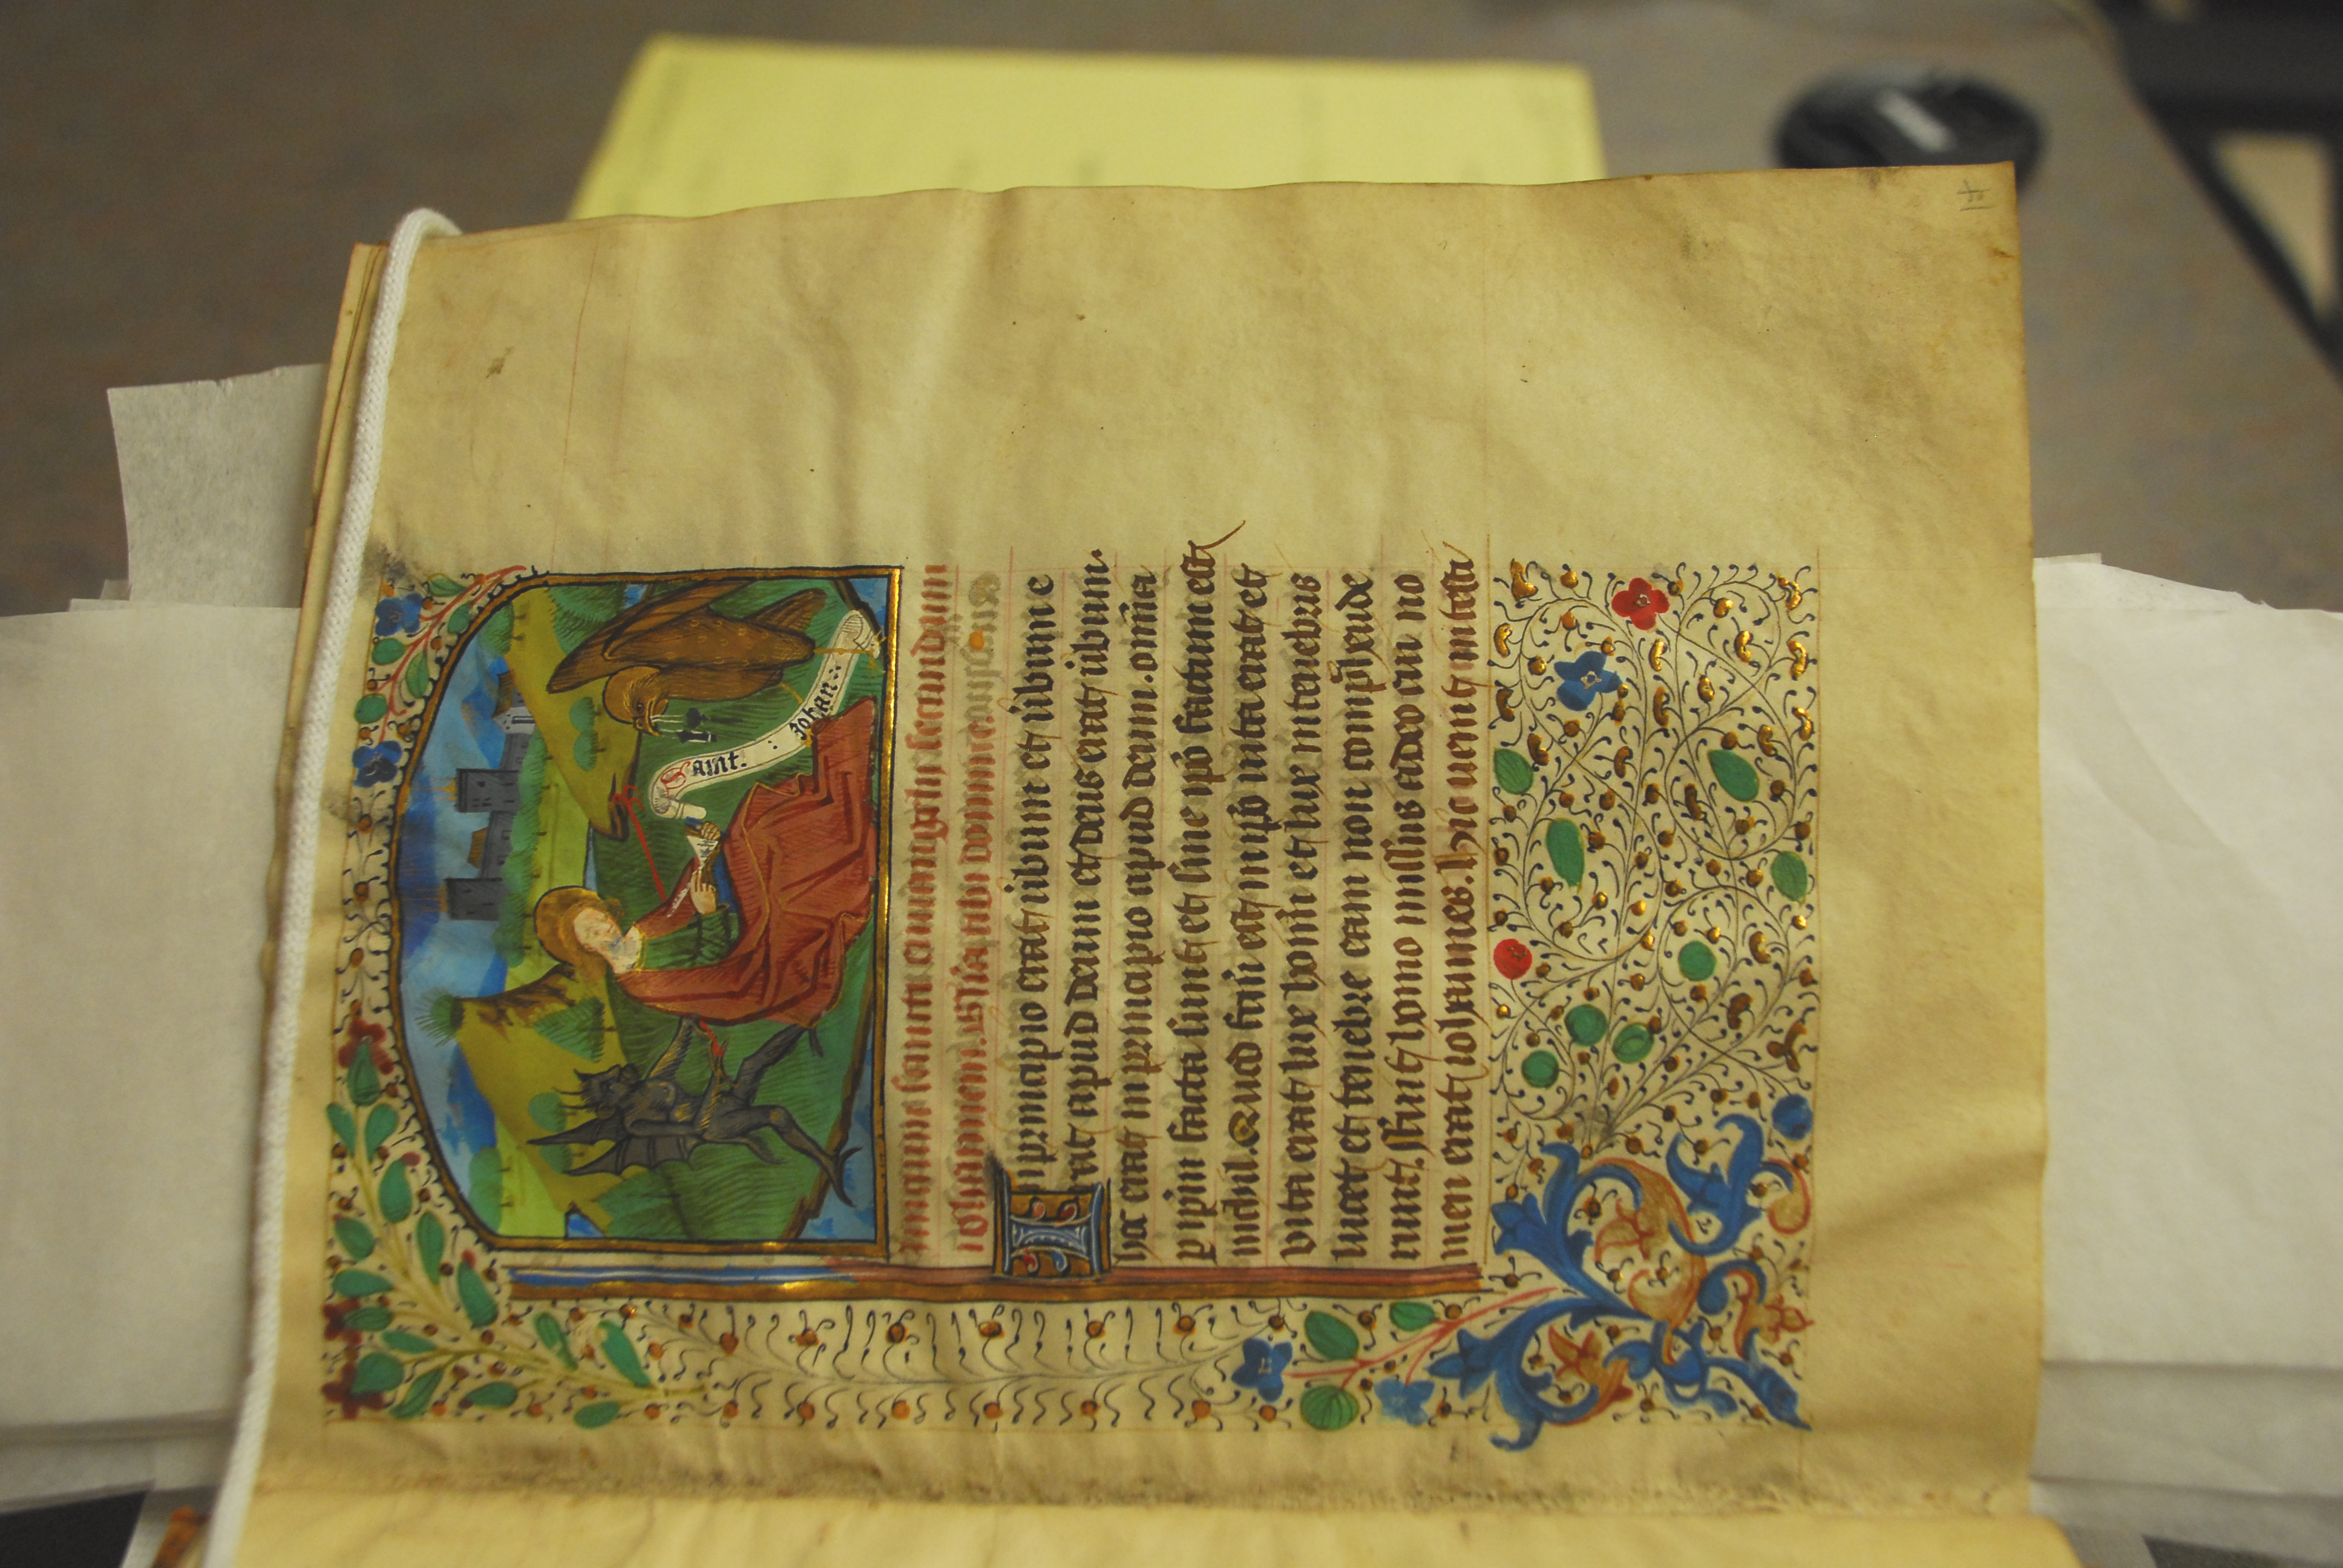 Saint. : Johan :
Inicium sancti euuangelii secundum
iohannem. Gloria tibi domine
In principio erat uerbum et uerbum e
rat apud deum et deus erat uerbum.
hoc erat in principio apud deum. omnia
p ipm facta sunt et sine ipo factum est
nichil. Quod factu est in ipso uita erat et
vita erat lux homi et lux in tenebris
lucet et tenebre eam non comphende
runt. ffuit homo missus a deo cui no
men erat iohannes. hic uenit in testi